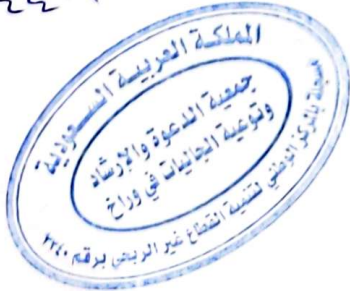 المملكة العربية السعودية
جمعية الدعوة والإرشاد
وتوعية الجاليات في وراخ
مسجلة بالمركز الوطني لتنمية القطاع غير الربحي برقم ٢٢٤٠